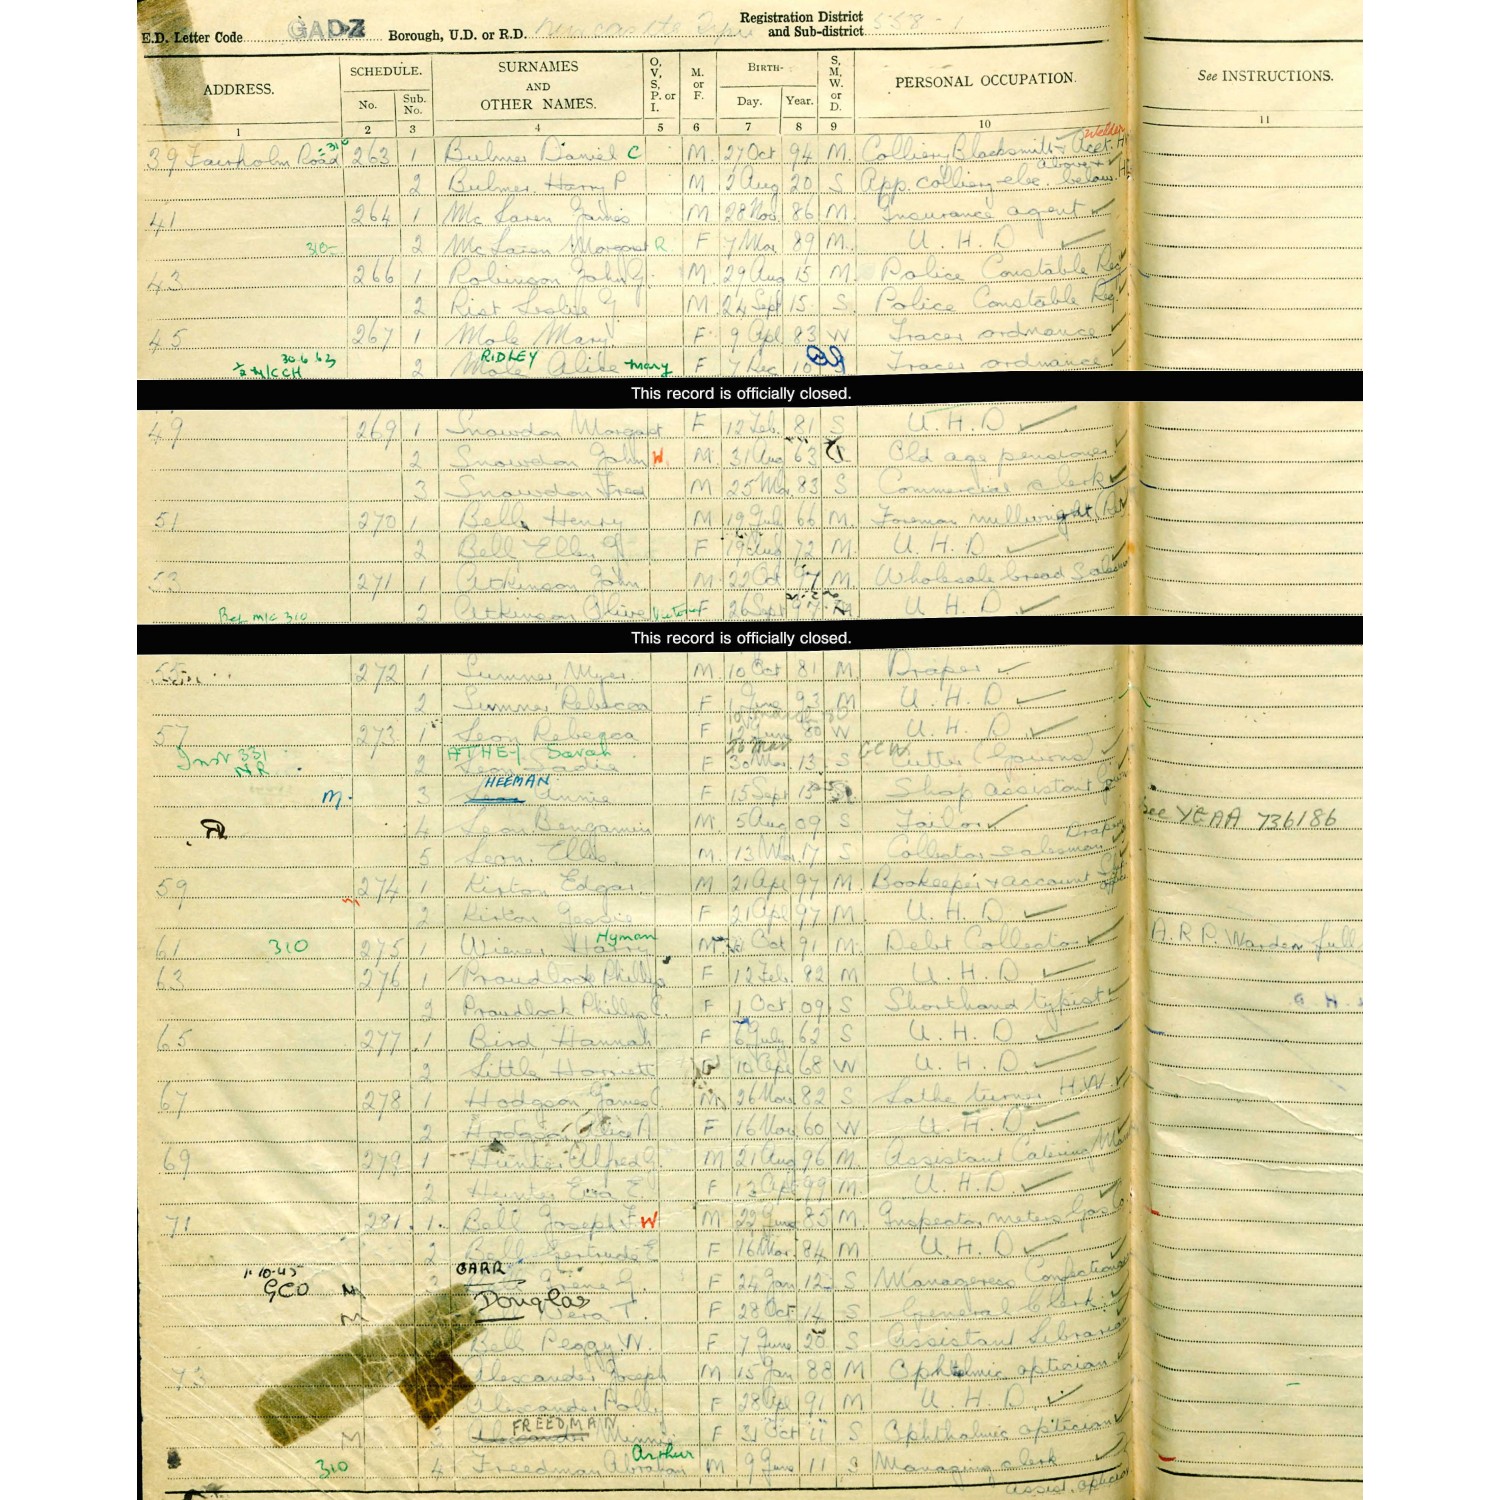 Registration District
and Sub-district 558-1
E.D. Letter Code GADZ Borough, U.D. or R.D. Newcastle Tyne
ADDRESS. SCHEDULE. SURNAMES AND OTHER NAMES. O, V, S, P. or I. M. or F. BIRTH- S, M, W. or D. PERSONAL OCCUPATION. See INSTRUCTIONS.
No. Sub. No. Day. Year.
1 2 3 4 5 6 7 8 9 10 11
Welder
39 Fairholm Road 263 1 Bulmer Daniel C M. 27 Oct 94 M. Colliery Blacksmith
above
2 Bulmer Harry P M 2 Aug 20 S App. colliery elec. below
41 264 1 McLaren James M 28 Nov 86 M. Insurance agent
310- 2 McLaren Margaret R F 7 Mar 89 M. U.H.D
43 266 1 Robinson John G. M. 29 Aug 15 M. Police Constable Reg
2 Rist Leslie G M. 24 Sept 15 S. Police Constable Reg
45 267 1 Mole Mary F. 9 Apl 83 W Tracer ordnance
30.6.63 RIDLEY
2 Mole Alice Mary F 7 Dec 10 Tracer ordnance
This record is officially closed.
49 269 1 Snowdon Margaret F 12 Feb. 81 S U.H.D
2 Snowdon John W M. 31 Aug 63 Old age pensioner
3 Snowdon Fred M 25 Mar 83 S Commercial clerk
51 270 1 Bell Henry M 19 July 66 M. Foreman millwright
2 Bell Ellen F 19 Aug 72 M. U.H.D
53 271 1 Atkinson John M. 22 Oct 97 M. Wholesale bread Sales
310 2 Atkinson Olive Victoria F 26 Sept 97 U.H.D
This record is officially closed.
55 272 1 Sumner Myer M 10 Oct 81 M. Draper
2 Sumner Rebecca F 1 June 93 M U.H.D
57 273 1 Leon Rebecca F 12 June 80 W U.H.D
331 NR ATHEY Sarah
2 Leon Sadie F 30 Mar. 13 S Cutter (Gowns)
HEEMAN
M. 3 Leon Annie F 15 Sept 15 Shop assistant
4 Leon Bengamin M. 5 Aug 09 S Tailor See YEAA 736186
Drapery
5 Leon Ellis M. 13 Mar 17 S Collector salesman
59 274 1 Kirton Edgar M 21 Apl 97 M Bookeeper + account
2 Kirton Jessie F 21 Apl 97 M. U.H.D
Hyman
61 310 275 1 Wiener Harry M Oct 91 M. Debt Collector A.R.P. Warden full
63 276 1 Proudlock Phillip F 12 Feb. 82 M U.H.D
2 Proudlock Phillip C. F 1 Oct 09 S Shorthand typist
65 277 1 Bird Hannah F 6 July 62 S U.H.D
2 Little Harriett 10 Apl 68 W U.H.D
67 278 1 Hodgson James M 26 Nov 82 S Lathe turner H.W.
2 Hodgson Alice A F 16 Nov 60 W U.H.D
69 279 1 Hunter Alfred G. M 21 Aug 96 M. Assistant Catering
2 Hunter Eva E. F 12 Apl 99 M. U.H.D
71 281 1 Bell Joseph F W M 22 June 85 M. Inspector meters Gas Co.
2 Bell Gertrude E F 16 Mar 84 M U.H.D
1.10.45 GCO CARR
M 3 Irene G. F 24 Jan 12 S Manageress Confectioner
Douglas
M Vera T. F 28 Oct 14 S General Clerk
Bell Peggy W. F 7 June 20 S Assistant Librarian
73 Alexander Joseph M 15 Jan 88 M Ophthalmic optician
Alexander Polly F 28 Apl 91 M U.H.D
FREEDMAN
M 3 Alexander Minnie F 31 Oct 11 S Ophthalmic optician
Arthur
310 4 Freedman Abraham M 9 June 11 S Managing clerk
Assist. optician